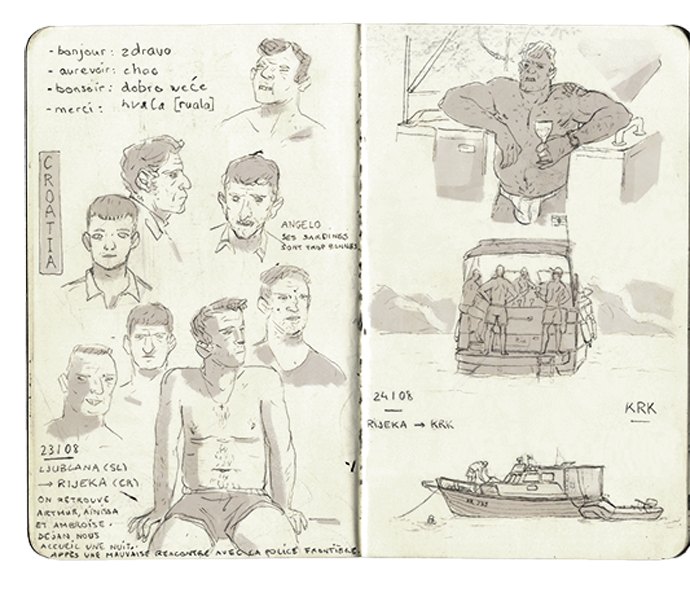 - bonjour : zdravo
- aurevoir : chao
- bonsoir : dobro veče
- merci : hvala [vuala]
CROATIA
ANGELO
SES SARDINES
SONT TROP BONNES
23/08
LJUBLANA (SL)
→ RIJEKA (CR)
ON RETROUVE
ARTHUR, AÏNHOA
ET AMBROISE.
DEJAN NOUS
ACCUEIL UNE NUIT.
APPÈS UNE MAUVAISE RENCONTRE AVEC LA POLICE FRONTIÈRE
24/08
RIJEKA → KRK
KRK